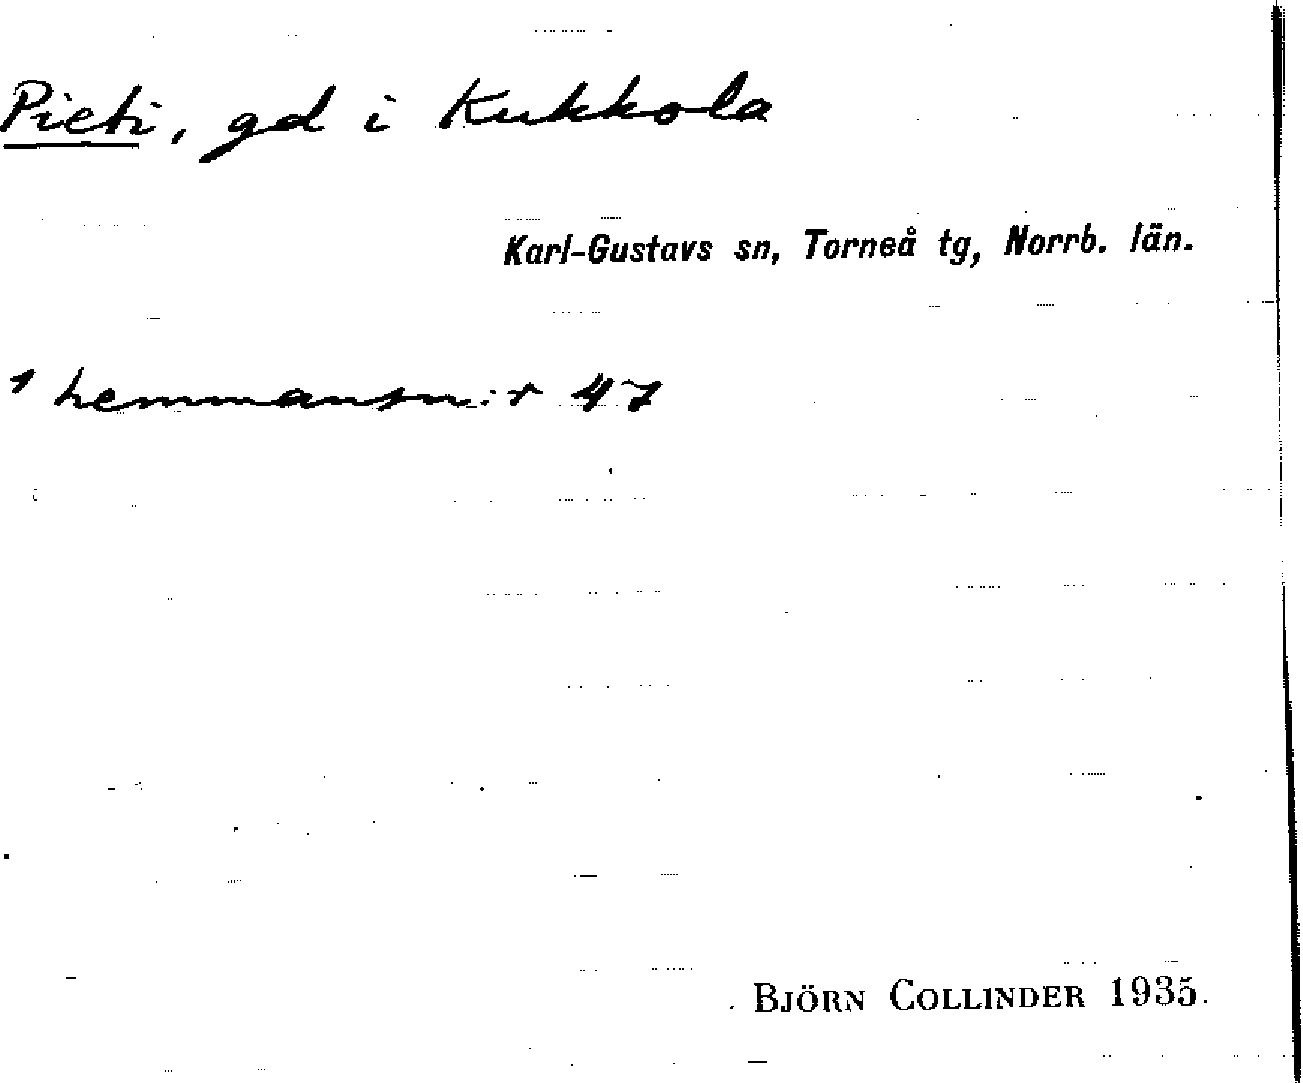 Pieti, gd i Kukkola
Karl-Gustavs sn, Torneå tg, Norrb. län.
1 hemmansn:r 47
BJÖRN COLLINDER 1935.